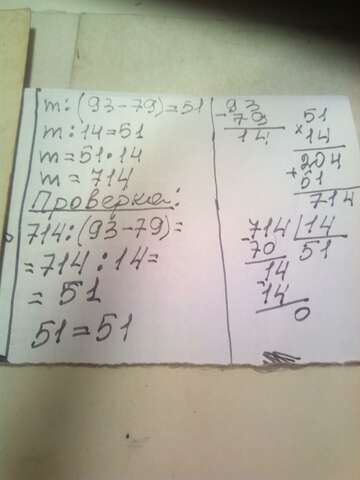 m:(93-79)=51
m:14=51
m=51·14
m=714
Проверка:
714:(93-79)=
=714:14=
=51
51=51
93
-79
14
51
×14
204
+51
714
-714|14
70 51
-14
14
0